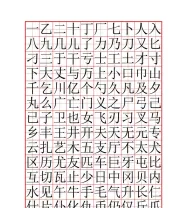 一乙二十丁厂七卜人入
八九几儿了力乃刀又匕
刁三于干亏士工土才寸
下大丈与万上小口巾山
千乞川亿个勺久凡及夕
丸么广亡门义之尸弓己
已子卫也女飞刃习叉马
乡丰王井开夫天无元专
云扎艺木五支厅不太犬
区历尤友匹车巨牙屯比
互切瓦止少日中冈贝内
水见午牛手毛气升长仁
什片仆化仇币仍仅斤